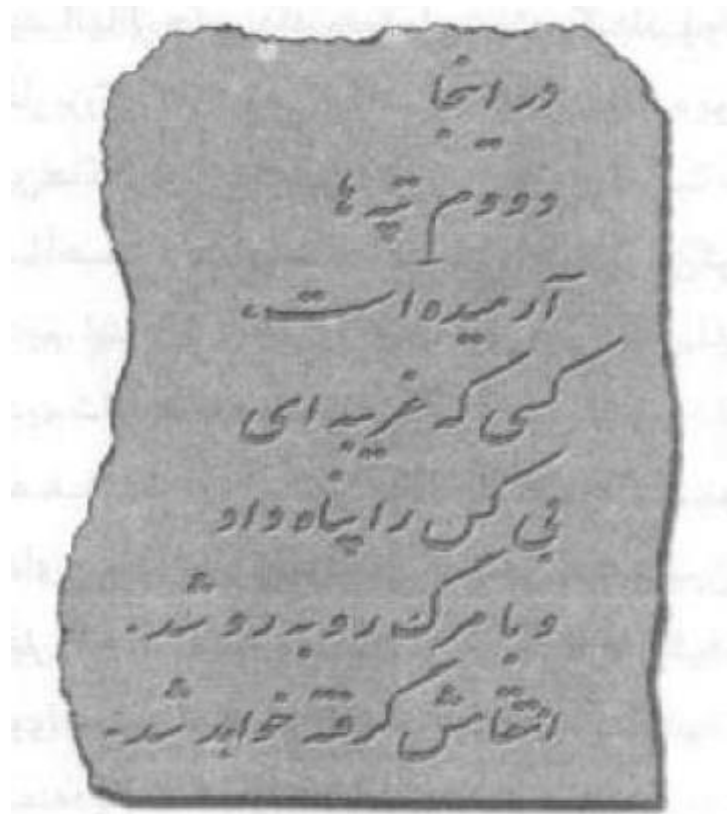 در اینجا
دووم تپه ها
آرمیده است،
کسی که غریبه ای
بی کس را پناه داد
و با مرگ روبه رو شد.
انتقامش گرفته خواهد شد.